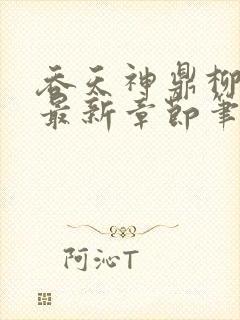 吞天神鼎柳
最新章节笔
阿沁T